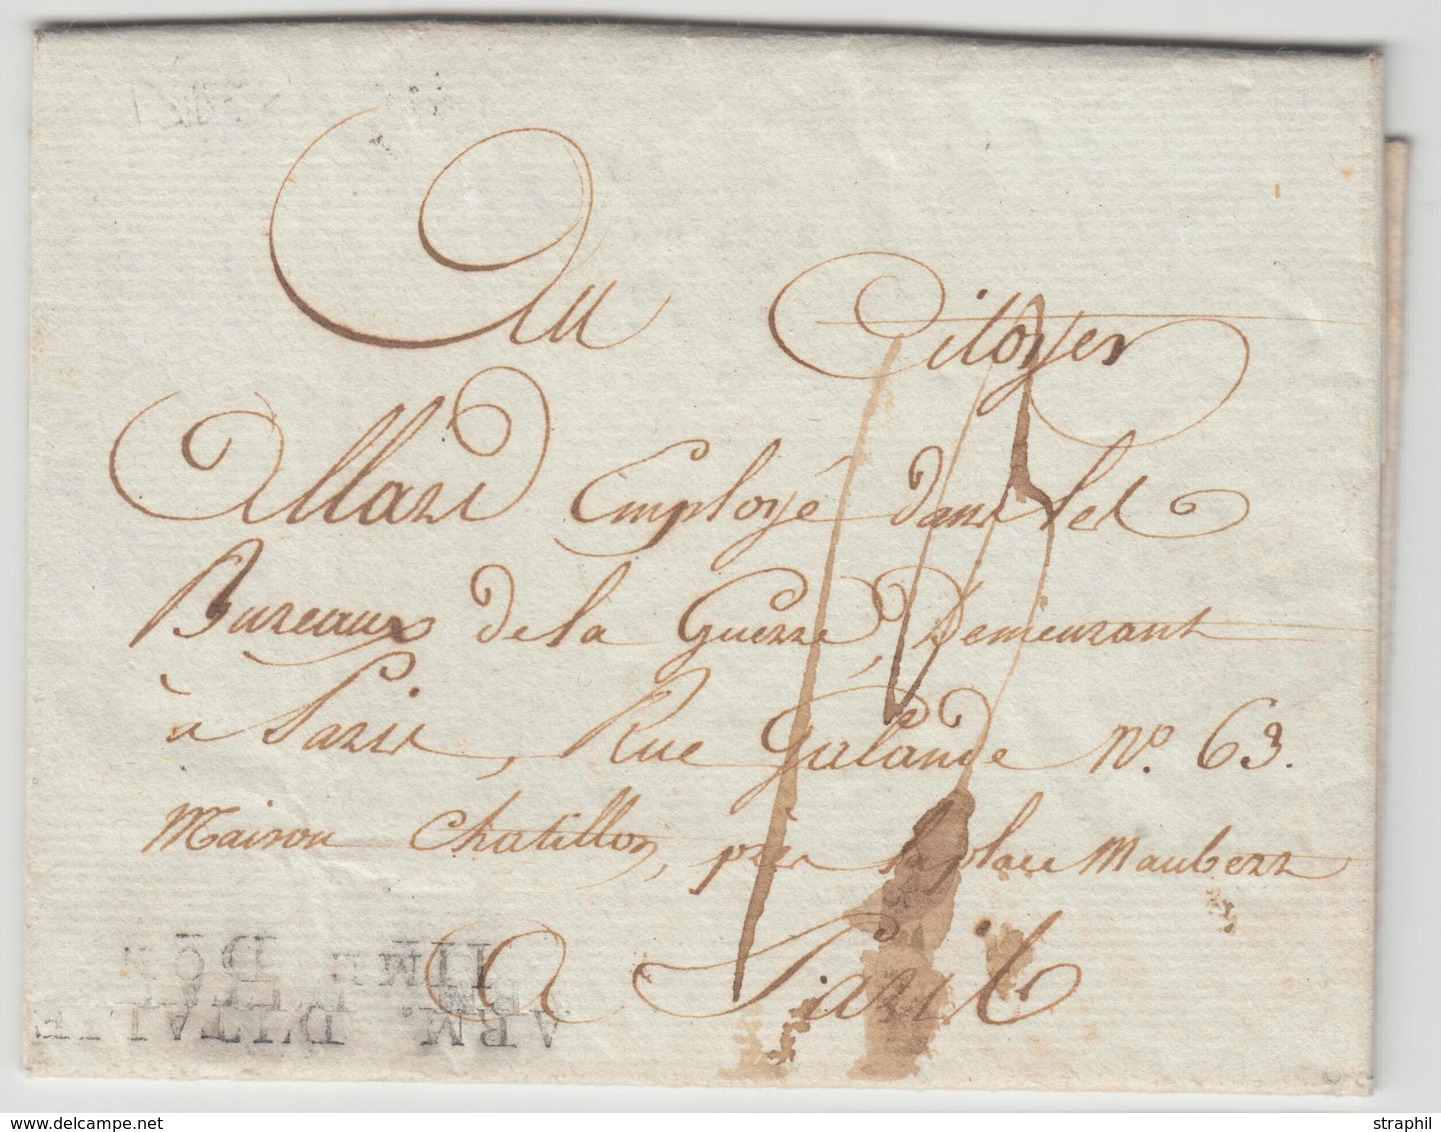 Au Citoyen
Allard Employé dans les
Bureaux de la Guerre, Demeurant
à Paris, Rue Galande n.º 63.
Maison Chatillon, près la place Maubert
A Paris
IIME D.ON
ARM. D'ITALIE
www.delcampe.net
straphil